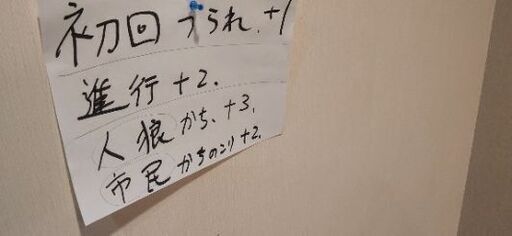 初回つられ.+1
進行+2.
人狼かち、+3.
市民かちのこり+2.